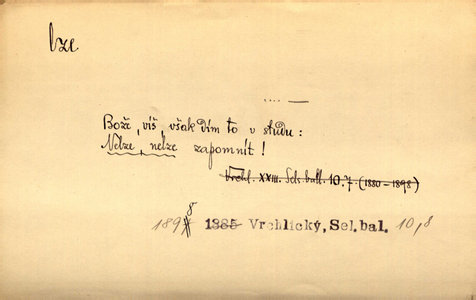 lze
.... —
Bože, víš, však dím to v studu:
Nelze, nelze zapomnít!
Vrchl. XXIII. Sels. ball. 10.7. (1880-1898)
1898 1885 Vrchlický, Sel. bal. 10,8